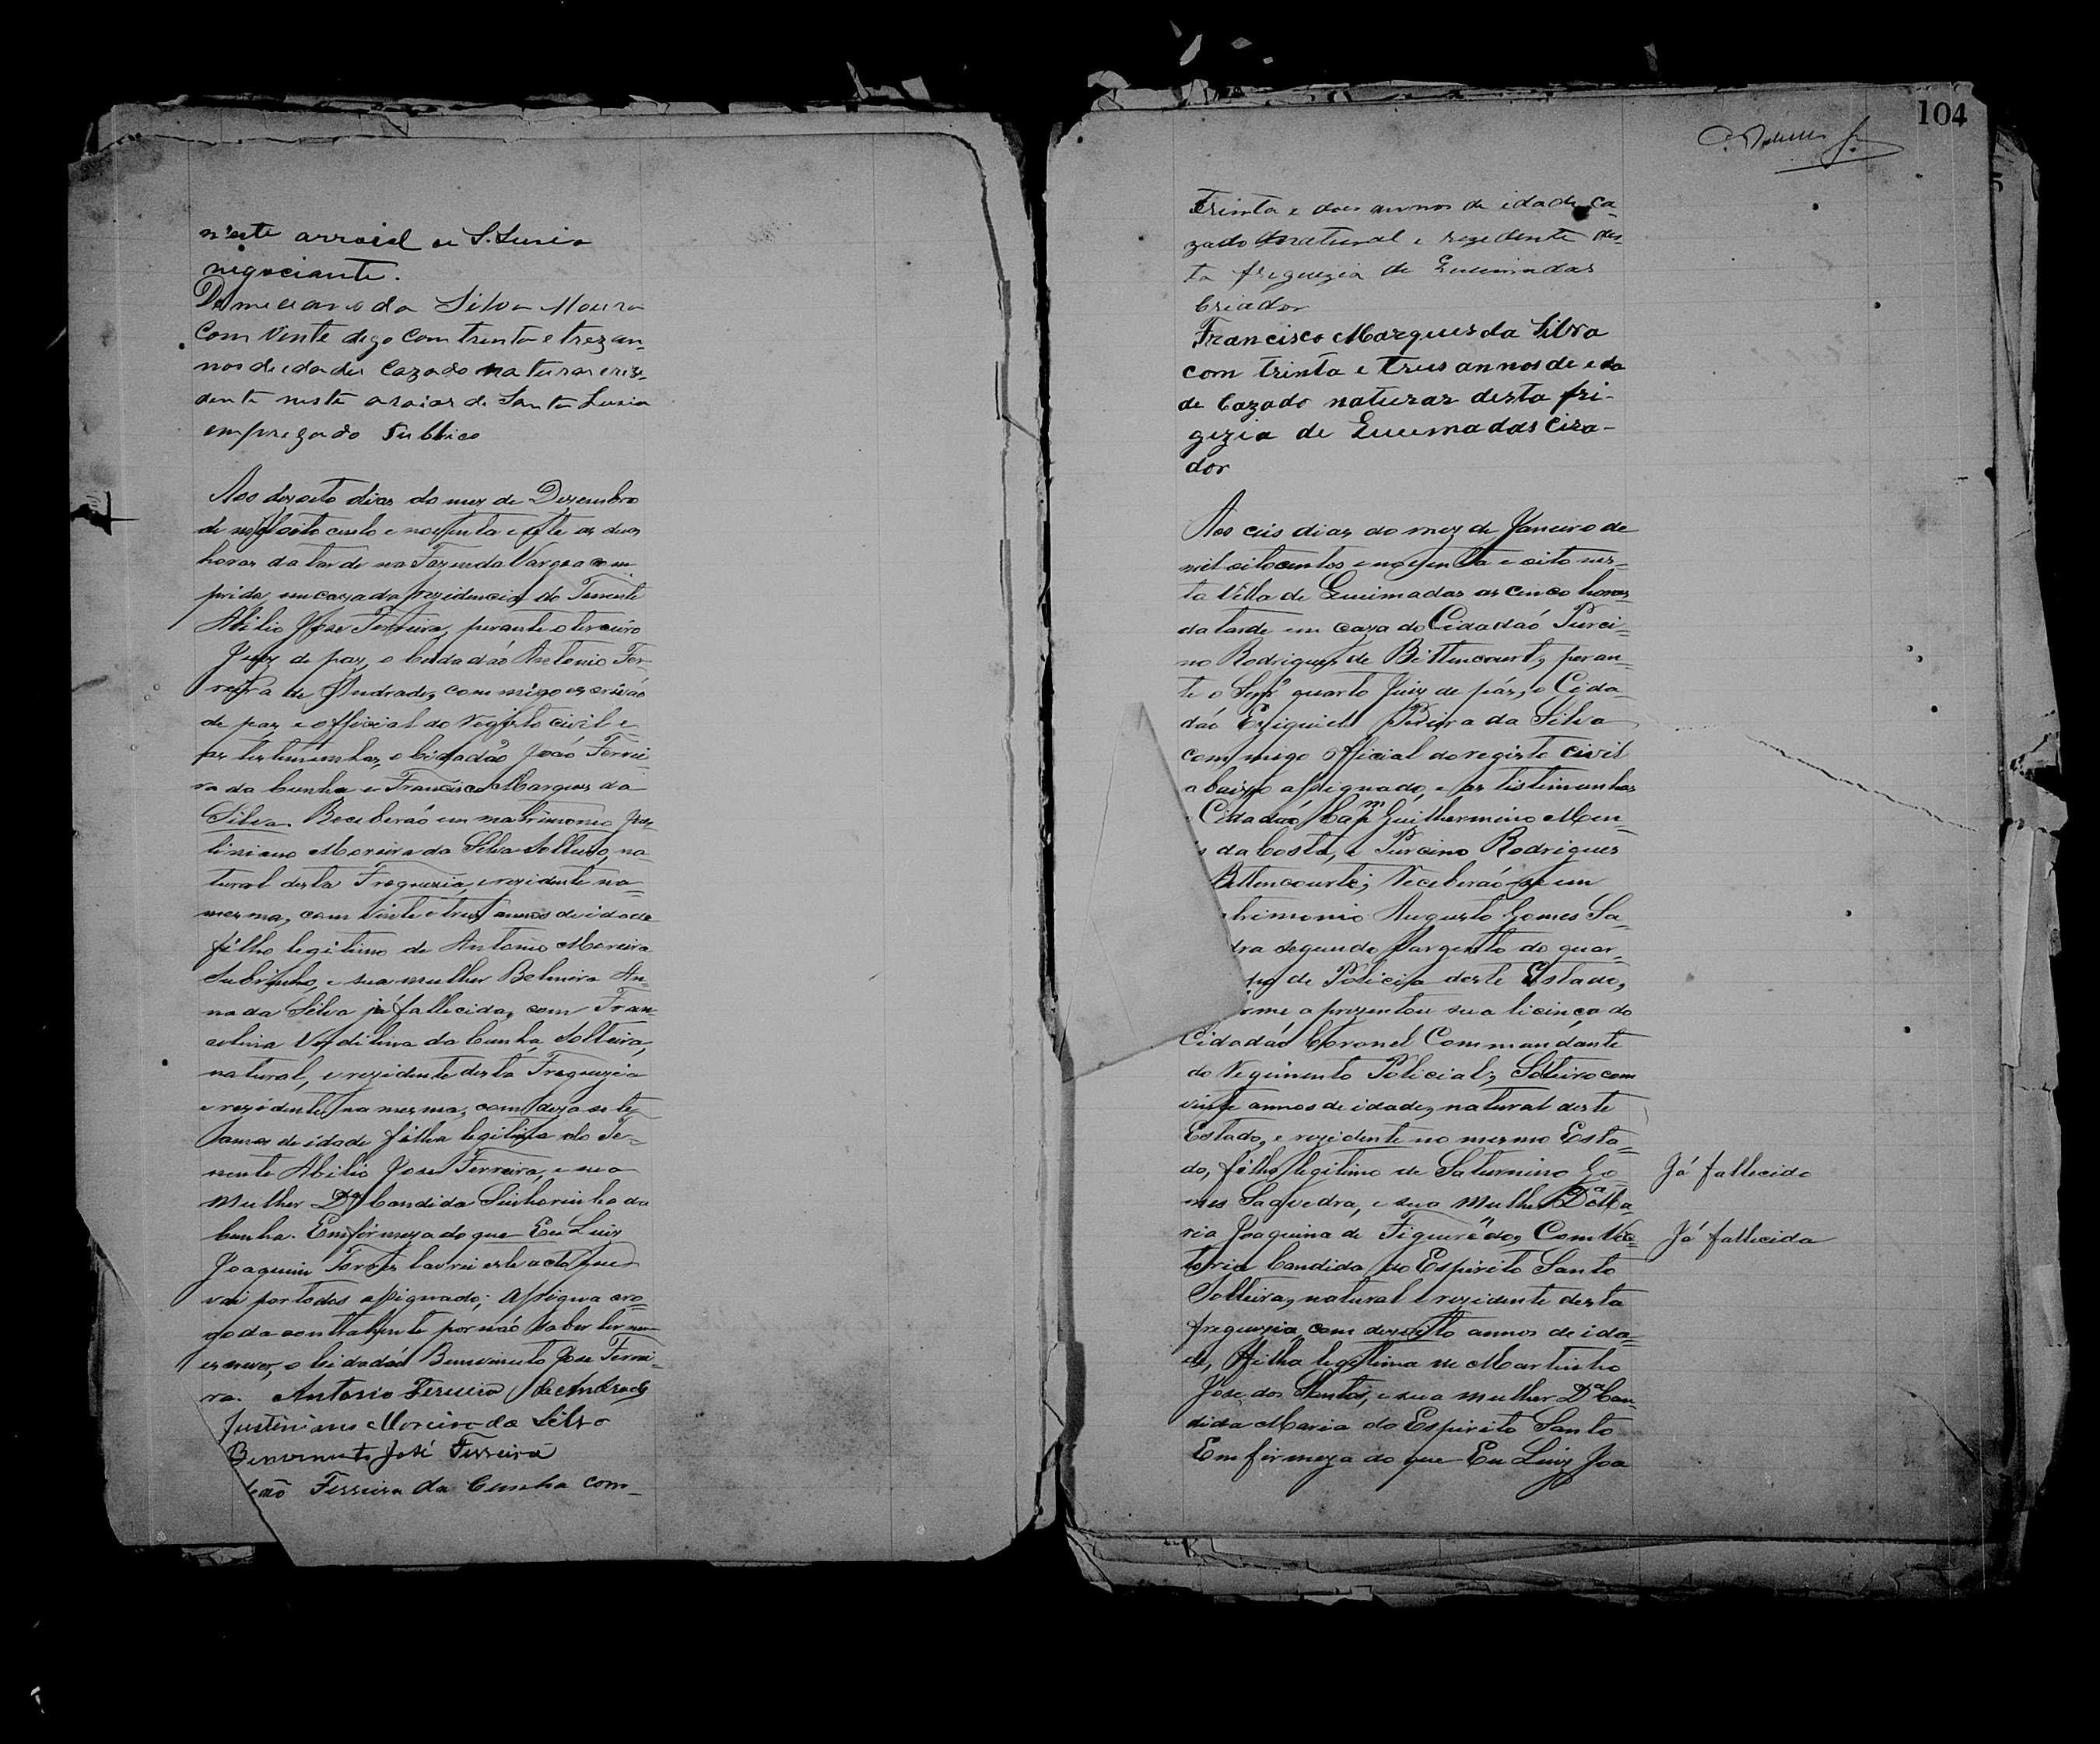 n'este arraial de S. Luzia
negociante.
da Silva Moura
Com Vinte digo com trenta e trez an-
nos de edades Cazado naturar e rize-
dente neste araiar de Santa Luzia
empregado Publico
Aos dezoito dias do mez de Dezembro
de mil oito cento e noventa e sete as duas
horas da tarde na Fazenda Vargea com-
prida em caza da rezidencia do Tenente
Abilio Jose Ferreira, perante o terceiro
Juiz de paz, o Cidadão Antonio Fer-
reira de Andrade, commigo escrivão
de paz e official do registo civil e
as testimunhas, o Cidadão João Ferrei-
ra da Cunha e Francisco Marques da
Silva. Receberão em matrimonio Jus-
tiniano Moreira da Silva Solteiro, na-
tural desta Freguezia, e rezidente na
mesma, com vinte e trez annos de idade
filho legitimo de Antonio Moreira
Subrinho, e sua mulher Belmira An-
na da Silva já fallecida, com Fran-
celina da Cunha, Solteira,
natural, e rezidente desta Freguezia
e rezidente na mesma, com dezasete
annos de idade filha legitima do Te-
nente Abilio Jose Ferreira, e sua
mulher Dª Candida Sinhorinha da
Cunha. Emfirmeza do que Eu Luiz
Joaquim Torres lavrei este acto que
vai por todos assignado; assigna aro-
go da contrahente por não saber ler nem
escrever, o Cidadão Benvenuto Jose Ferrei-
ra. Antonio Ferreira de Andrade
Justiniano Moreira da Silva
Benvenuto José Ferreira
João Ferreira da Cunha com-
104
trinta e dois annos de idade ca-
zado natural e rezedente des-
ta freguezia de Queimadas
Criador
Francisco Marques da Silva
com trinta e treis annos de eda
de Cazado naturar desta fri-
gezia de Queimadas Cira-
dor
Aos ceis dias do mez de Janeiro de
mil oitocentos e noventa e oito nes-
ta Villa de Queimadas as cinco horas
da tarde em caza do Cidadão Purci-
no Rodrigues de Bittencourt, peran-
te o Senr quarto Juiz de páz, o Cida-
dão Eziquiel Pereira da Silva
commigo official do registo civil
abaixo assignado, e as tistimunhas
o Cidadão Capm Guilhermino Men-
s da Costa, e Purcino Rodrigues
Bittencourt; Receberão-se em
trimonio Augusto Gomes Sa-
dra segundo Sargento do quar-
de Policia deste Estado,
rme aprezentou sua licença do
Cidadão Coronel Commandante
do Regimento Policial; Solteiro com
vinte annos de idade, natural deste
Estado, e rezidente no mesmo Esta-
do, filho legitimo de Saturnino Go-
mes Saavedra, e sua mulher Dª Ma-
ria Joaquina de Figuerêdo, Com Vic-
toria Candida do Espirito Santo
Solteira, natural e rezidente desta
freguezia com dezoito annos de ida-
de, filha legitima de Martinho
Jose dos Santos, e sua mulher Dª Can-
dida Maria do Espirito Santo
Emfirmeza do que Eu Luiz Joa
Já fallecido
Já fallecida